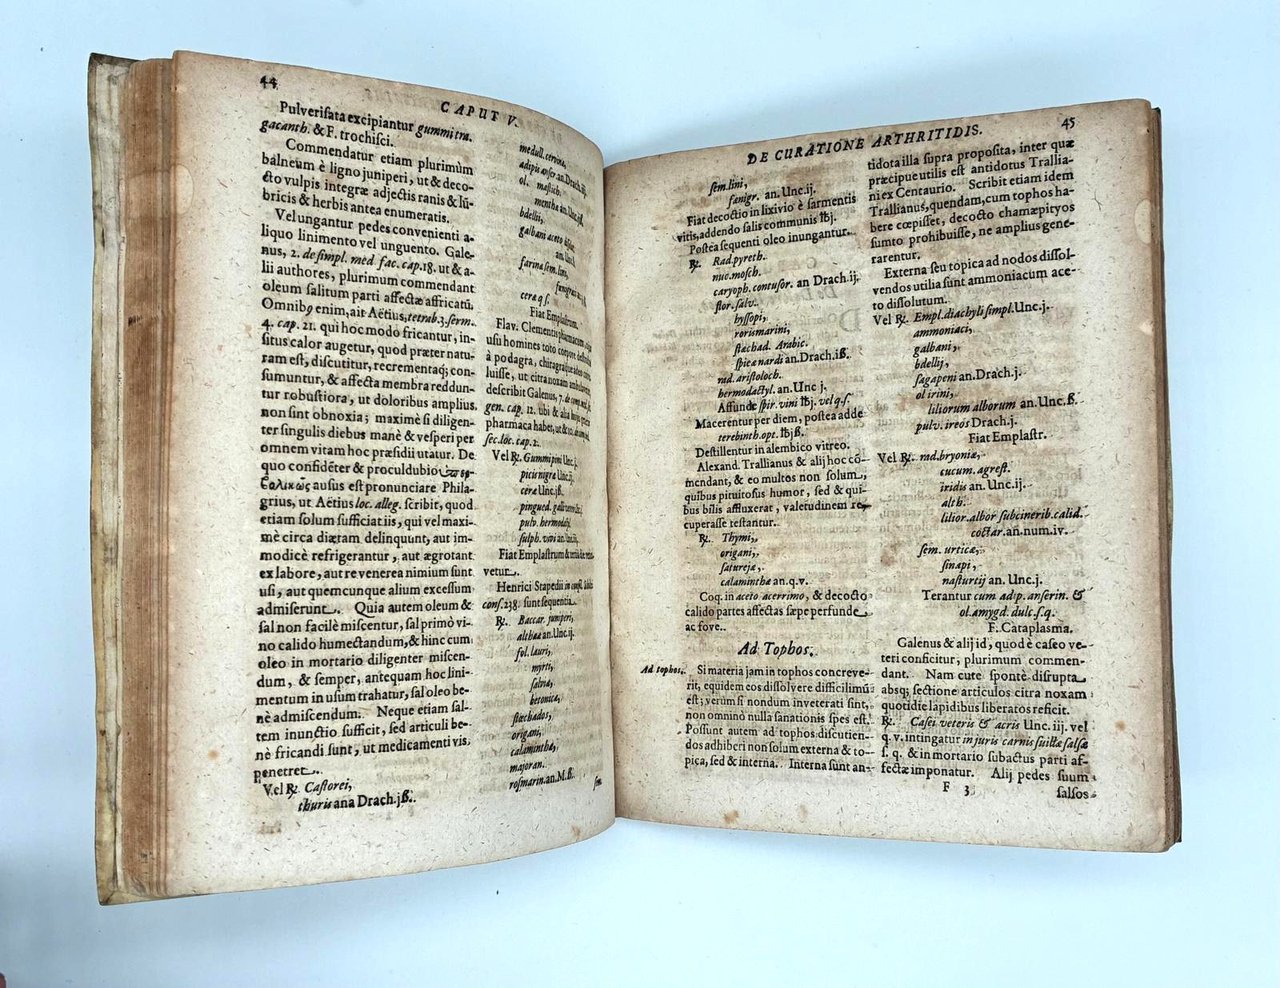 44
CAPUT V.
Pulveriſata excipiantur gummi tra-
gacanth. & F. trochiſci.
Commendatur etiam plurimùm
balneum è ligno juniperi, ut & deco-
cto vulpis integræ adjectis ranis & lū-
bricis & herbis antea enumeratis.
Vel ungantur pedes convenienti a-
liquo linimento vel unguento. Gale-
nus, 2. de ſimpl. med fac. cap. 18. ut & a-
lii authores, plurimum commendant
oleum ſalitum parti affectæ affricatū.
Omnibꝰ enim, ait Aëtius, tetrab. 3. ſerm.
4. cap. 21. qui hoc modo fricantur, in-
ſitus calor augetur, quod præter natu-
ram eſt, diſcutitur, recrementaq; con-
ſumuntur, & affecta membra reddun-
tur robuſtiora, ut doloribus amplius
non ſint obnoxia; maximè ſi diligen-
ter ſingulis diebus manè & veſperi per
omnem vitam hoc præſidii utatur. De
quo confidēter & proculdubio
auſus eſt pronunciare Phila-
grius, ut Aëtius loc. alleg. ſcribit, quod
etiam ſolum ſufficiat iis, qui vel maxi-
mè circa diætam delinquunt, aut im-
modicè refrigerantur, aut ægrotant
ex labore, aut re venerea nimium ſunt
uſi, aut quemcunque alium exceſſum
admiſerunt. Quia autem oleum &
ſal non facilè miſcentur, ſal primò vi-
no calido humectandum, & hinc cum
oleo in mortario diligenter miſcen-
dum, & ſemper, antequam hoc lini-
mentum in uſum trahatur, ſal oleo be-
nè admiſcendum. Neque etiam ſal-
tem inunctio ſufficit, ſed articuli be-
nè fricandi ſunt, ut medicamenti vis
penetret.
Vel ℞. Caſtorei,
thuris ana Drach.jß.
medull. cervinæ,
adipis anſer. an. Drach.ij.
ol. maſtich.
menthæ an. Unc.jß.
bdellii,
galbani aceto
an. Unc.
farinæ ſem. lini,
fœnigræci
ceræ q ſ.
Fiat Emplaſtrum.
Flav. Clementis pharmacum,
uſu homines toto corpore
à podagra, chiragraque
luiſſe, ut citra noxam ambularent,
deſcribit Galenus, 7. de comp. med. ſec.
gen. cap. 12. ubi & alia
pharmaca habet, ut &
ſec. loc. cap. 2.
Vel ℞. Gummi pini Unc.j.
picis nigræ Unc.j.
ceræ Unc.jß.
pingued.
pulv. hermodact.
ſulph. vivi
Fiat Emplaſtrum &
vetur.
Henrici Stapedii in
conſ. 238. ſunt ſequentia.
℞. Baccar. juniperi,
altheæ an. Unc.ij.
fol. lauri,
myrti,
ſalviæ,
betonicæ,
ſtœchados,
origani,
calaminthæ,
majoran.
roſmarin. an. M.ß.
ſem.
DE CURATIONE ARTHRITIDIS.
45
ſem. lini,
fœnigr. an. Unc.ij.
Fiat decoctio in lixivio è ſarmentis
vitis, addendo ſalis communis ℔j.
Poſtea ſequenti oleo inungantur.
℞. Rad. pyreth.
nuc. moſch.
caryoph. contuſor. an Drach.ij.
flor. ſalv.
hyſſopi,
rorismarini,
ſtæchad. Arabic.
ſpicæ nardi an. Drach.iß.
rad. ariſtoloch.
hermodactyl. an. Unc j.
Affunde ſpir. vini ℔j. vel q.ſ.
Macerentur per diem, poſtea adde
terebinth. opt. ℔jß.
Deſtillentur in alembico vitreo.
Alexand. Trallianus & alij hoc cō-
mendant, & eo multos non ſolum,
quibus pituitoſus humor, ſed & qui-
bus bilis affluxerat, valetudinem re-
cuperaſſe teſtantur.
℞. Thymi,
origani,
ſatureja,
calaminthæ an. q. v.
Coq. in aceto acerrimo, & decocto
calido partes affectas ſæpe perfunde
ac fove.
Ad Tophos.
Ad tophos.
Si materia jam in tophos concreve-
rit, equidem eos diſſolvere difficilimū
eſt; verum ſi nondum inveterati ſint,
non omninò nulla ſanationis ſpes eſt.
Poſſunt autem ad tophos diſcutien-
dos adhiberi non ſolum externa & to-
pica, ſed & interna. Interna ſunt an-
tidota illa ſupra propoſita, inter quæ
præcipue utilis eſt antidotus Trallia-
ni ex Centaurio. Scribit etiam idem
Trallianus, quendam, cum tophos ha-
bere cœpiſſet, decocto chamæpityos
ſumto prohibuiſſe, ne amplius gene-
rarentur.
Externa ſeu topica ad nodos diſſol-
vendos utilia ſunt ammoniacum ace-
to diſſolutum.
Vel ℞. Empl. diachyli ſimpl. Unc.j.
ammoniaci,
galbani,
bdellij,
ſagapeni an. Drach.j.
ol irini,
liliorum alborum an. Unc.ß.
pulv. ireos Drach.j.
Fiat Emplaſtr.
Vel ℞. rad. bryoniæ,
cucum. agreſt.
iridis an. Unc.ij.
alth.
lilior. albor ſub cinerib. calid.
coctar. an. num. iv.
ſem. urticæ,
ſinapi,
naſturtij an. Unc.j.
Terantur cum adip. anſerin. &
ol. amygd. dulc. ſ. q.
F. Cataplaſma.
Galenus & alij id, quod è caſeo ve-
teri conficitur, plurimum commen-
dant. Nam cute ſpontè diſrupta
absq; ſectione articulos citra noxam
quotidie lapidibus liberatos reficit.
℞. Caſei veteris & acris Unc. iij. vel
q. v. intingatur in juris carnis ſuillæ ſalſæ
ſ. q. & in mortario ſubactus parti af-
fectæ imponatur. Alij pedes ſuum
F 3
ſalſos